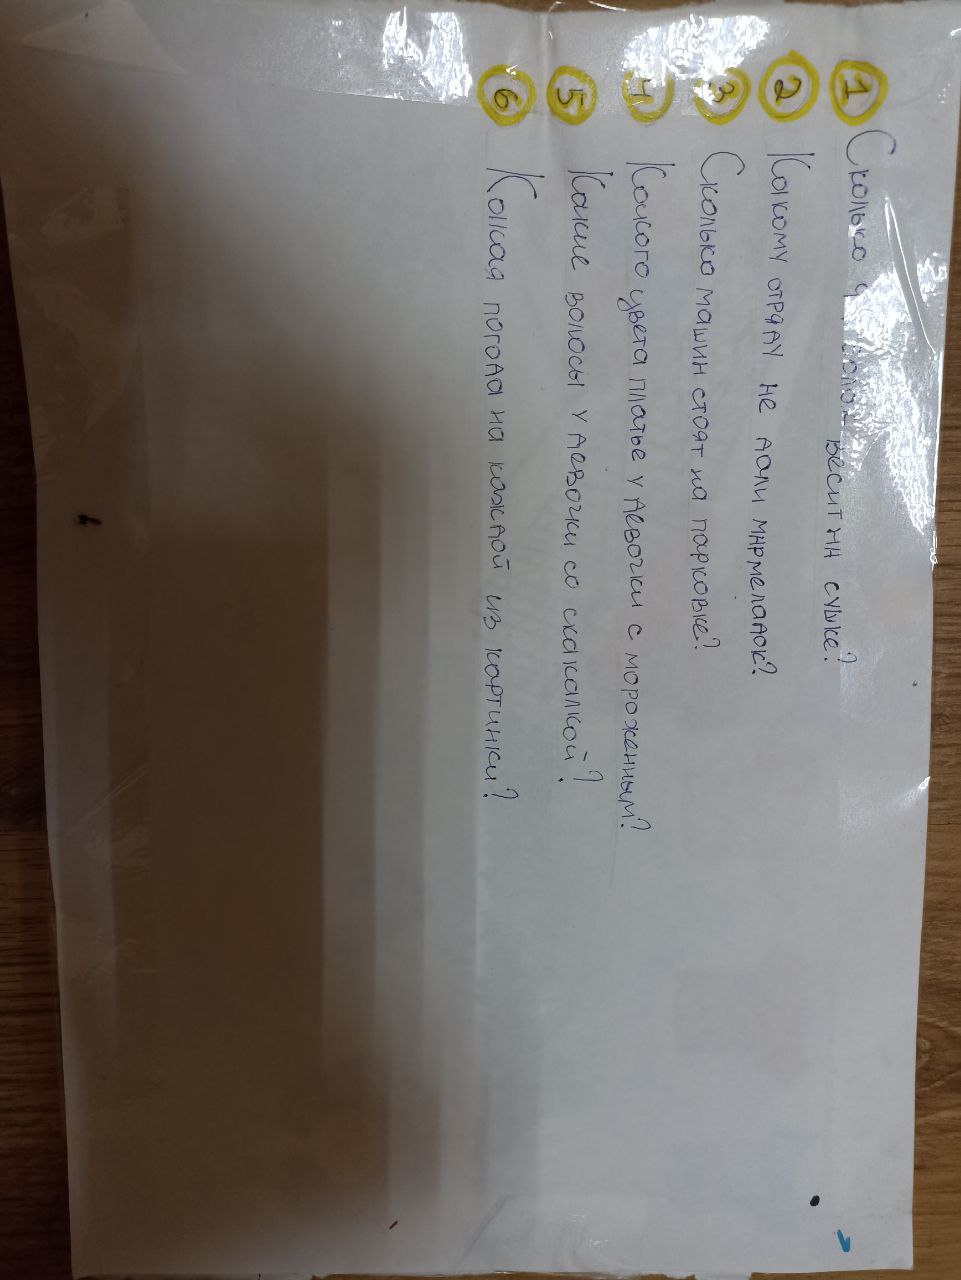 1 Сколько весит ин сушке?
2 Какому отряду не дали мармеладок?
3 Сколько машин стоят на парковке?
4 Какого цвета платье у девочки с мороженным?
5 Какие волосы у девочки со скакалкой?
6 Какая погода на каждой из картинки?